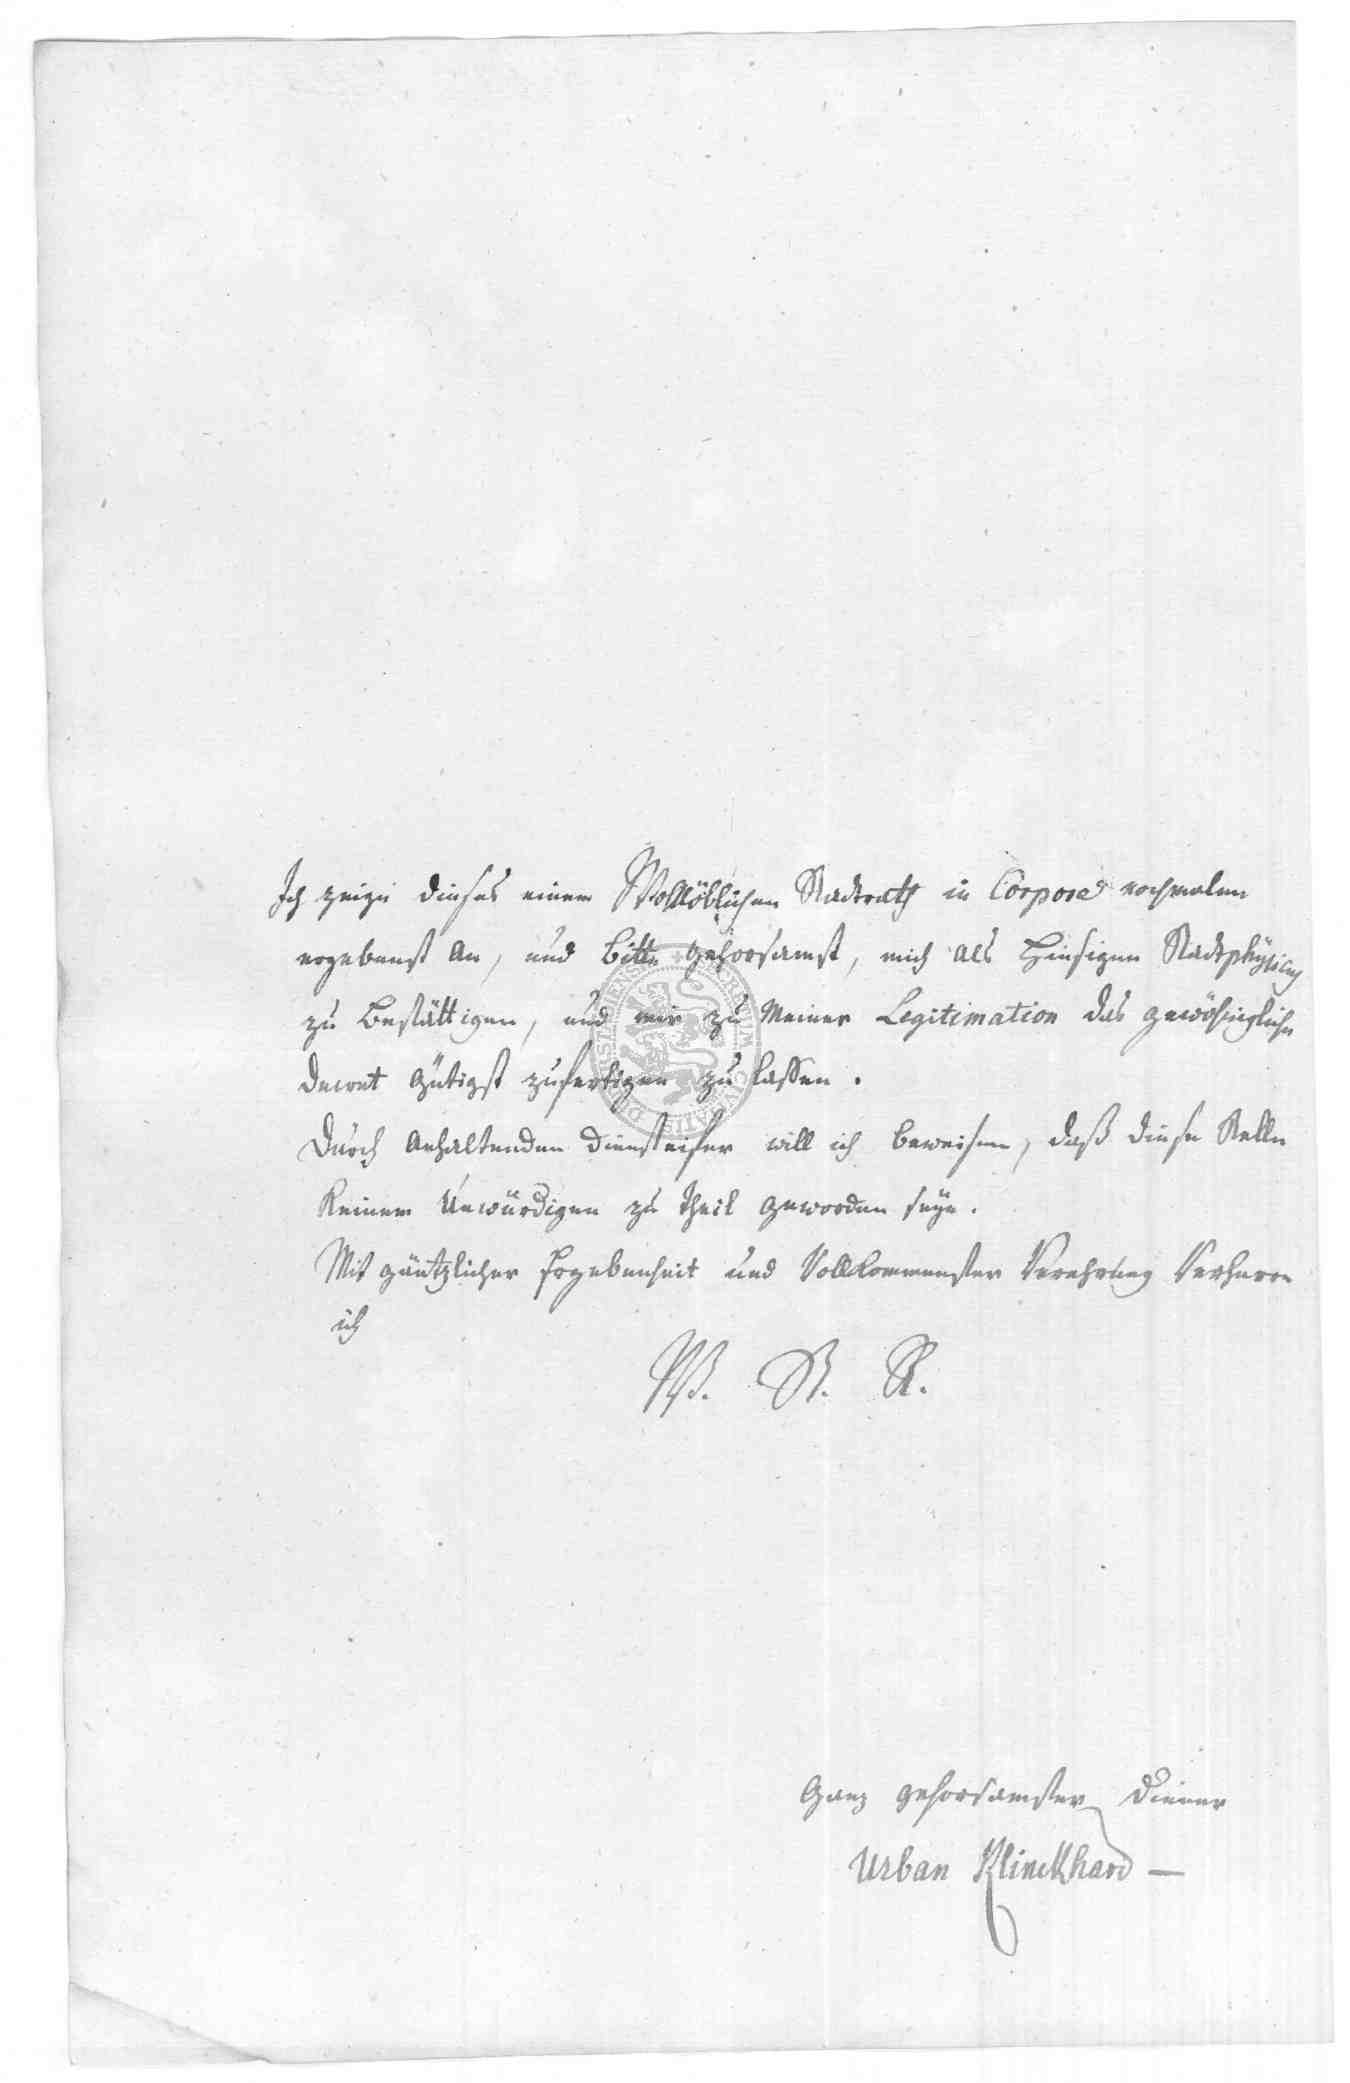 Ich zeige dieses einem Wohllöblichen Stadtrath in Corpore nochmalen
ergebenst an, und bitte gehorsamst, mich als hiesigen Stadtphÿsicus
zu bestättigen, und mir zu meiner Legitimation das gewöhngliche
Decret gütigst zufertigen zu lassen.
Durch anhaltenden Diensteifer will ich beweisen, daß diese Stelle
keinem Unwürdigen zu theil geworden seÿe.
Mit gäntzlicher Ergebenheit und Vollkommenster Verehrung Verharre
ich
W. St. R.
Ganz gehorsamster Diener
Urban Klinckhard —